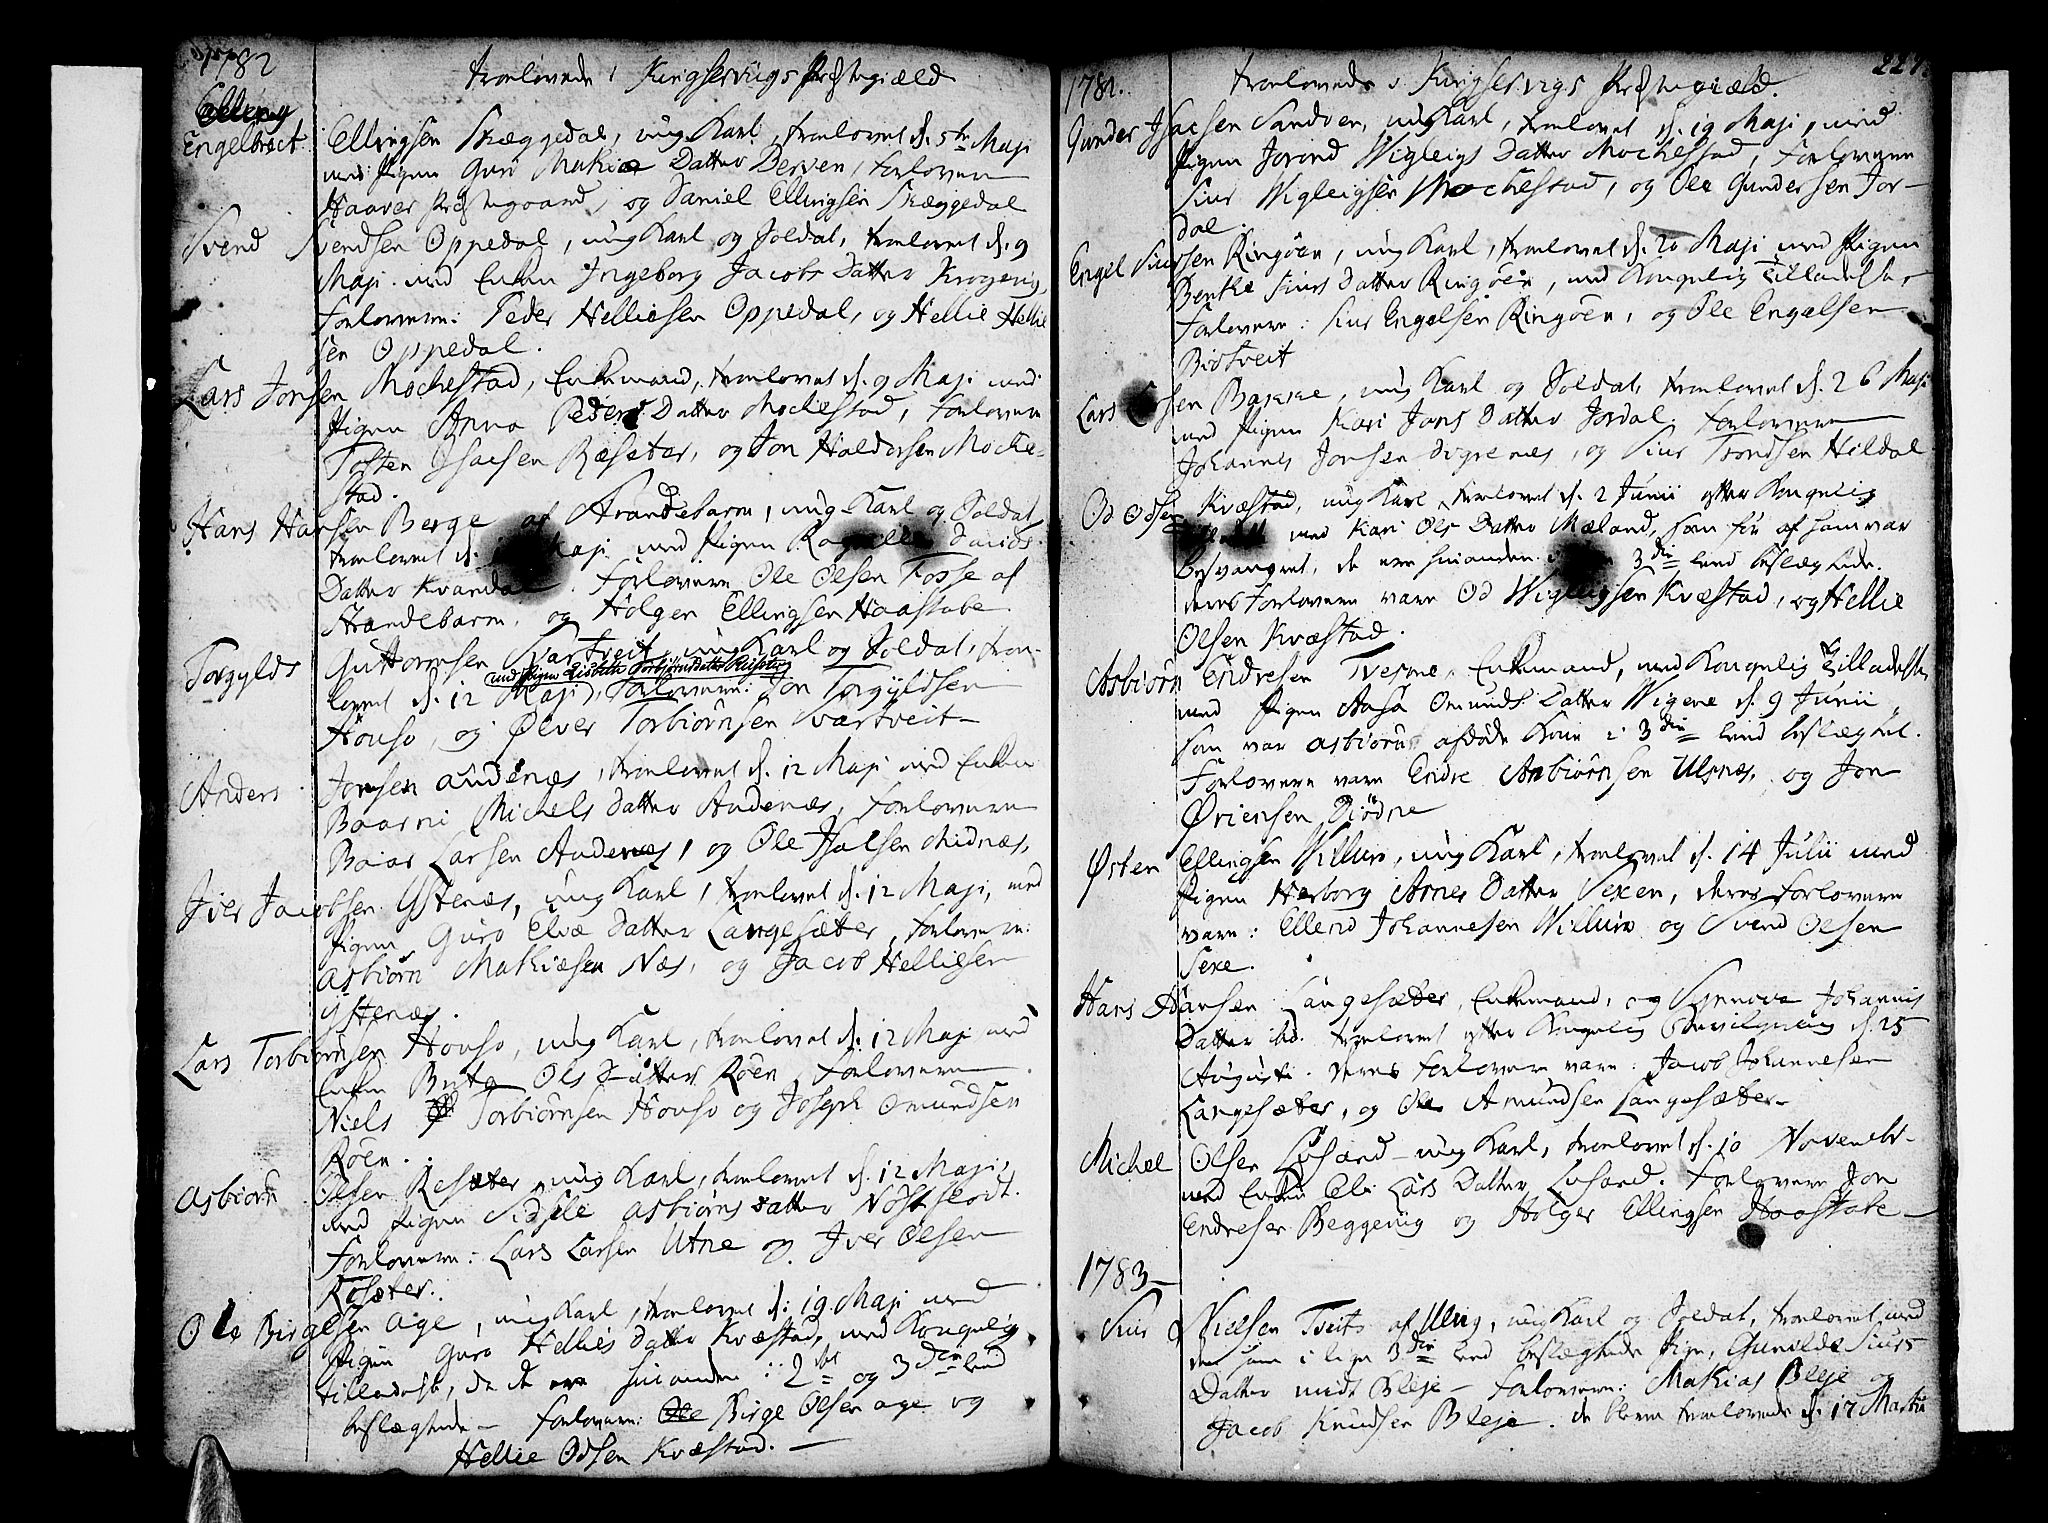 1782
troelovede i Kingservigs Præstegiæld
Engelbrect Ellingsen Skæggedal, ung Karl, troelovet d. 5te Maji
med Pigen Guro Makiæ Datter Berven, Forlovere
Haaver Præstegaard, og Daniel Ellingsen Skæggedal
Svend Svendsen Oppedal, ung Karl og Soldat, troelovet d. 9
Maji med Enken Ingeborg Jacobs Datter Krogevig,
Forlovere: Peder Helliesen Oppedal, og Hellie Hellie
sen Oppedal.
Lars Jonsen Mochestad, Enkemand, troelovet d. 9 Maji med
Pigen Anna Peders Datter Mochestad, Forlovere
Tosten Isacsen Ræsæter, og Jon Haldorsen Moche-
stad.
Hans Hansen Berge af Strandebarm, ung Karl og Soldat
troelovet d. Maji med Pigen Davids
Datter Kvandal. Forlovere Ole Olsen Fosse af
Strandebarm, og Holger Ellingsen Haastabe
Torgylds Guttormsen Svartveit, ung Karl og Soldat, troe-
med Pigen Lisbeth Torbiørnsdatter
lovet d. 12 Maji, Forlovere: Jon Torgyldsen
Houso, og Ølver Torbiørnsen Svartveit
Anders Jonsen Audenæs, troelovet d. 12 Maji med Enken
Baarni Michels Datter Audenæs, Forlovere
Baiar Larsen Audenæs, og Ole Isacsen Midnæs,
Iver Jacobsen Ystenæs, ung Karl, troelovet d. 12 Maji, med
Pigen Guro Elvæ Datter Langesæter, Forlovere:
Asbiørn Makiæsen Næs, og Jacob Helliesen
Ystenæs.
Lars Torbiørnsen Houso, ung Karl, troelovet d. 12 Maji med
Enken Brita Ols Datter Røen, Forlovere
Niels Torbiørnsen Houso og Joseph Omundsen
Røen.
Asbiørn Olsen Resæter, ung Karl, troelovet d. 12 Maji,
med Pigen Sidsele Asbiørns Datter Nøstflodt.
Forlovere: Lars Larsen Utne og Iver Olsen
Resæter.
Ole Birgesen Age, ung Karl, troelovet d. 19 Maji med
Pigen Guro Hellies Datter Kvæstad, med Kongelig
tilladelse, da de ere hinanden i 2det og 3die Leed
beslægtede – Forlovere: Birge Olsen Age og
Hellie Odsen Kvæstad. –
227.
1782.
troelovede i Kingservigs Præstegiæld.
Gunder Isacsen Sandven, ung Karl, troelovet d. 19 Maji, med
Pigen Jorend Wigleigs Datter Mochestad, Forlovere
Siur Wigleigsen Mochestad, og Ole Gundersen Jor-
dal.
Engel Siursen Ringøen, ung Karl, troelovet d. 20 Maji med Pigen
Benthe Siurs Datter Ringøen, med Kongelig Tilladelse,
Forlovere: Siur Engelsen Ringøen, og Ole Engelsen
Bistveit
Lars Bakke, ung Karl og Soldat, troelovet d. 26 Maji
med Pigen Kari Jons Datter Jordal. Forlovere
Johannes Jonsen Digrenæs, og Siur Trondsen Hildal
Od Odsen Kvæstad, ung Karl troelovet d. 2 Junii efter Kongelig
med Kari Ols Datter Mæland, som før af ham var
besvangret, de ere hinanden i 3die Leed beslægtede.
deres Forlovere vare Od Wigleigsen Kvæstad, og Hellie
Olsen Kvæstad.
Asbiørn Endresen Tvesme, Enkemand, med Kongelig Tilladelse
med Pigen Aasa Omunds Datter Wigene d. 9 Junii,
som var Asbiørns afdøde Kone i 3die Leed beslægtet.
Forlovere vare Endre Anbiørnsen Ulsnæs, og Jon
Øriensen Diødne
Østen Ellingsen Willure, ung Karl, troelovet d. 14 Julii med
Pigen Herborg Arnes Datter Sexen, deres Forlovere
vare: Ellend Johannesen Willure og Svend Olsen
Sexe.
Hans Hansen Langesæter, Enkemand, og Synnøva Johannis
Datter ibd. troelovet efter Kongelig Bevilgning d. 25
Augusti. deres Forlovere vare: Jacob Johannesen
Langesæter, og Ole Amundsen Langesæter
Michel Olsen Lusand – ung Karl, troelovet d. 10 Novembr
med Enken Eli Lars Datter Lusand. Forlovere Jon
Endresen Beggevig og Holger Ellingsen Haastabe –
1783 –
Siur Nielsen Tveito af Ulvig, ung Karl og Soldat, troelovet med
den ham i lige 3die Leed beslægtede Pige, Gunilde Siurs
Datter midt Bleje – Forlovere: Makias Bleje og
Jacob Knudsen Bleje. de bleve troelovede d. 17 Martii